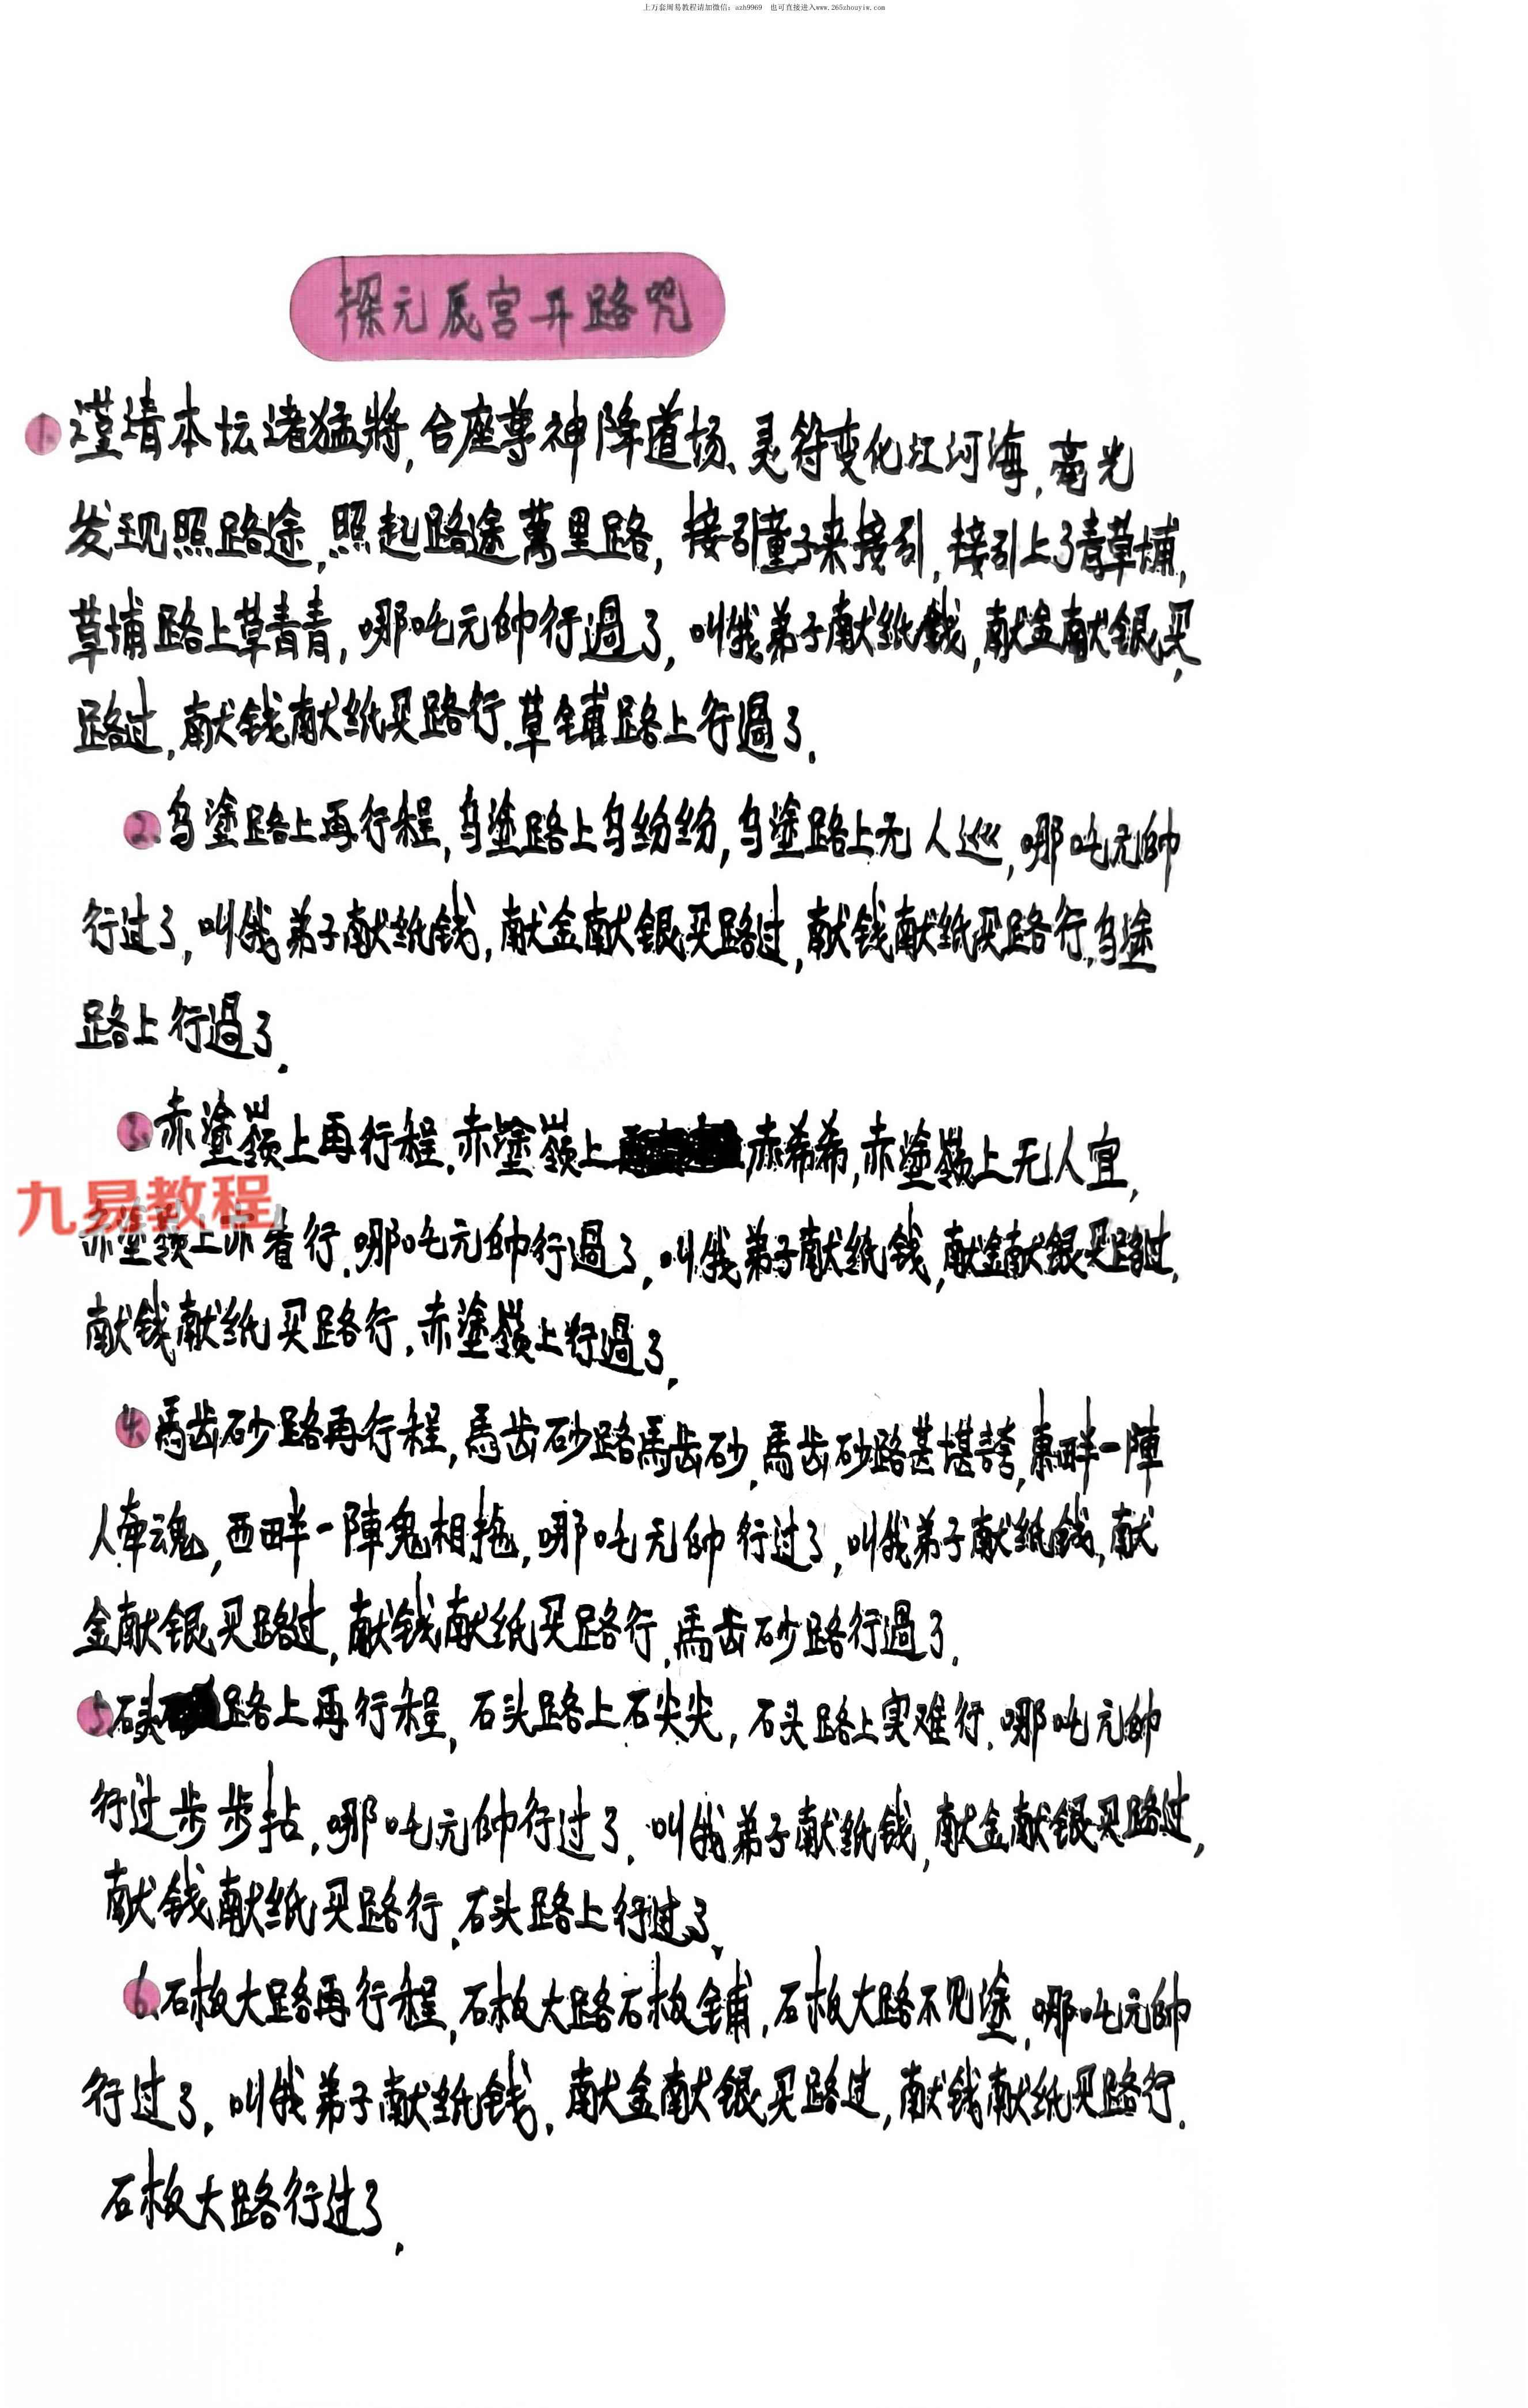 上万套周易教程请加微信：azh9969 也可直接进入www.265zhouyiw.com
探元辰宫开路咒
1. 谨请本坛诸猛將,合座尊神降道场、灵符变化江河海,毫光
发现照路途,照起路途萬里路,接引童子来接引,接引上了青草埔,
草埔路上草青青,哪吒元帅行過了,叫俄弟子献纸钱,献金献银买
路过,献钱献纸买路行.草铺路上行過了.
2. 乌塗路上再行程,乌塗路上乌纷纷,乌塗路上无人巡,哪吒元帅
行过了,叫俄弟子献纸钱,献金献银买路过,献钱献纸买路行,乌塗
路上行過了.
3. 赤塗嶺上再行程.赤塗嶺上赤希希,赤塗嶺上无人宜,
九易教程
赤塗嶺上亦着行.哪吒元帅行過了,叫俄弟子献纸钱,献金献银买路过,
献钱献纸买路行.赤塗嶺上行過了.
4. 馬齿砂路再行程,馬齿砂路馬齿砂,馬齿砂路甚堪誇,東畔一陣
人牵魂,西畔一陣鬼相拖,哪吒元帅行过了,叫俄弟子献纸钱,献
金献银买路过,献钱献纸买路行,馬齿砂路行過了.
5. 石头路上再行程,石头路上石尖尖,石头路上实难行.哪吒元帅
行过步步拈,哪吒元帅行过了.叫俄弟子献纸钱,献金献银买路过,
献钱献纸买路行.石头路上行过了、
6. 石板大路再行程,石板大路石板铺,石板大路不见塗,哪吒元帅
行过了.叫俄弟子献纸钱.献金献银买路过,献钱献纸买路行.
石板大路行过了.